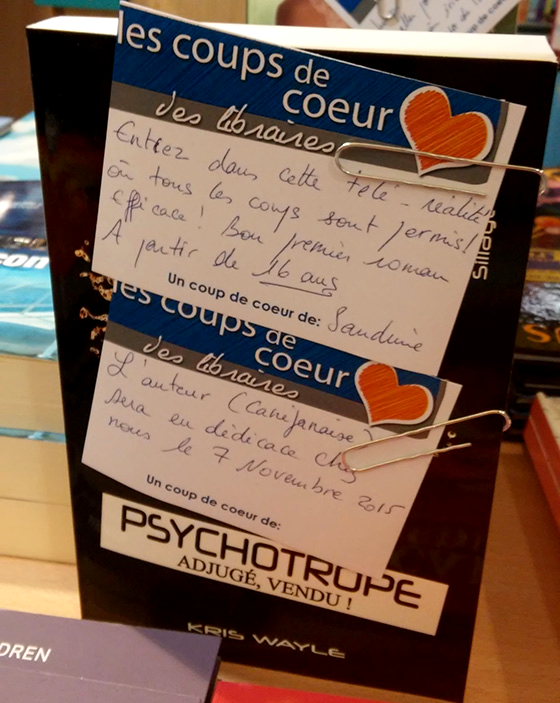 les coups de
coeur
des libraires
Entrez dans cette télé-réalité
où tous les coups sont permis!
Efficace! Bon premier roman
A partir de 16 ans
Un coup de coeur de: Sandrine
Sillage
les coups de
coeur
des libraires
L'auteur (Canejanaise)
sera en dédicace chez
nous le 7 Novembre 2015
Un coup de coeur de:
PSYCHOTROPE
ADJUGÉ, VENDU !
KRIS WAYLE
DREN